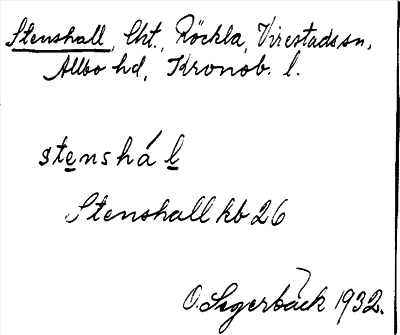 Stenshall, Lht., Röckla, Virestads sn,
Allbo hd, Kronob. l.
stenshá l
Stenshall kb 26
O. Segerbäck 1932.